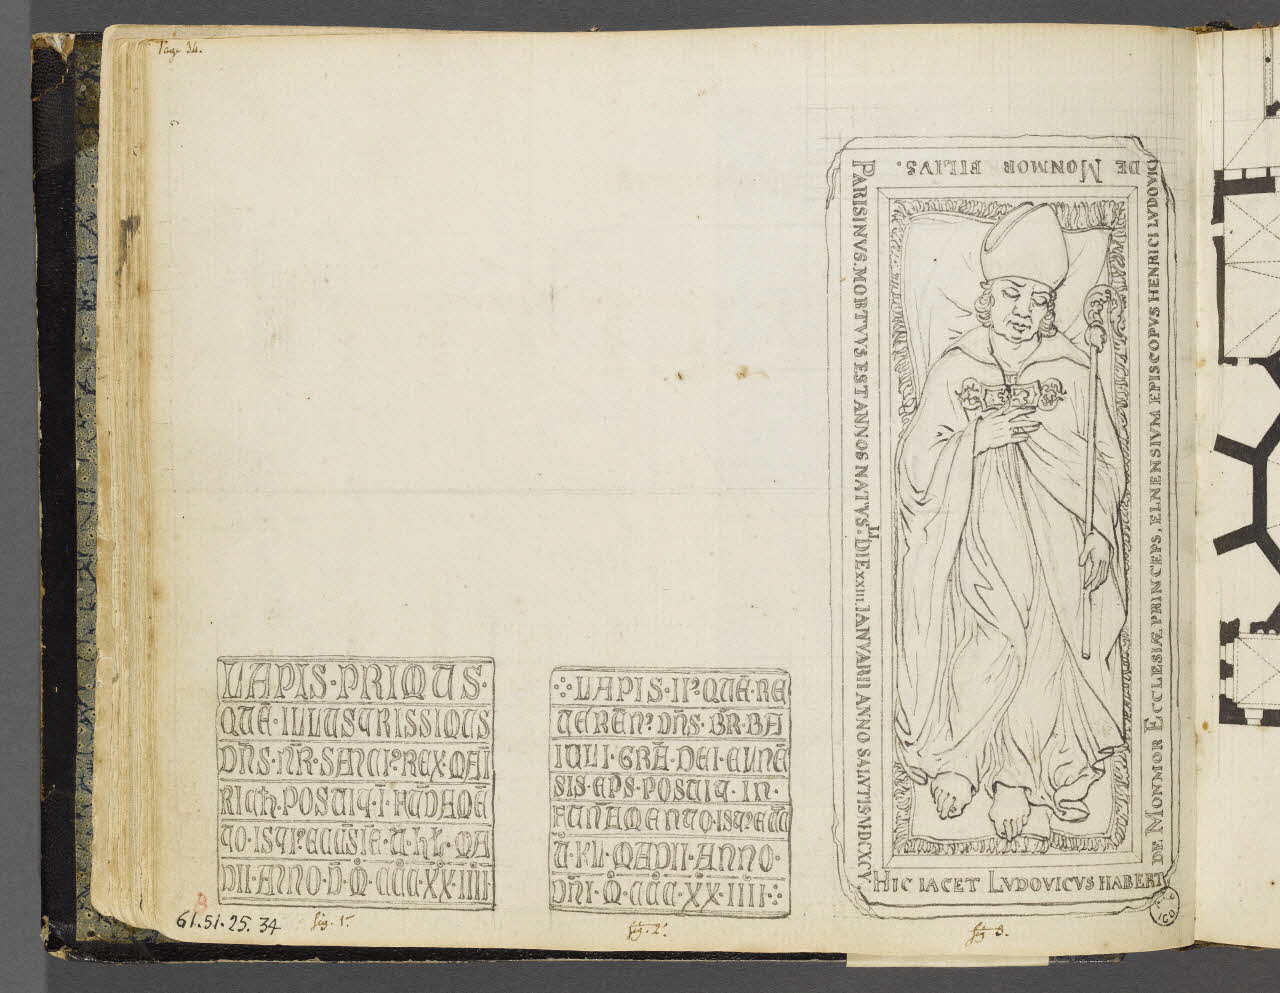 Page 34.
LAPIS · PRIMUS ·
QUE · ILLUSTRISSIMUS
DNS · NR · SANCI9 · REX · MAI
RICH · POSUIT · I · FUDAME
TO · ISTI9 · ECCLSIE · U · KL · MA
DII · ANNO · D · M · CCC · XX · IIII ·
fig. 1.
LAPIS · II9 · QUE · RE
UEREN9 · DNS · BR · BA
IULI · GRA · DEI · ELNE
SIS · EPS · POSUIT · IN ·
FUNDAMENTO · ISTI9
U · KL · MADII · ANNO ·
DNI · M · CCC · XX · IIII
fig. 2.
HIC IACET LVDOVICVS HABERT
DE MONMOR ECCLESIÆ PRINCEPS, ELNENSIVM EPISCOPVS HENRICI LVDOVICI
DE MONMOR FILIVS.
PARISINVS. MORTVVS EST ANNOS NATVS. LI DIE XXIII IANVARII ANNO SALVTIS. MDCXCV.
fig 3.
61.51.25. 34